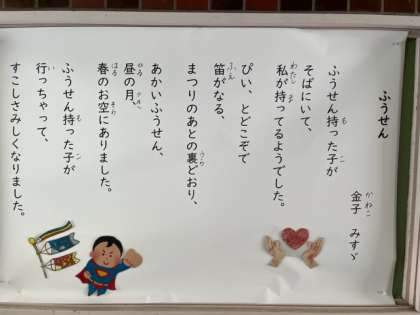 ふうせん
金子 みすゞ
ふうせん持った子が
そばにいて、
私が持ってるようでした。
ぴい、とどこぞで
笛がなる、
まつりのあとの裏どおり、
あかいふうせん、
昼の月、
春のお空にありました。
ふうせん持った子が
行っちゃって、
すこしさみしくなりました。